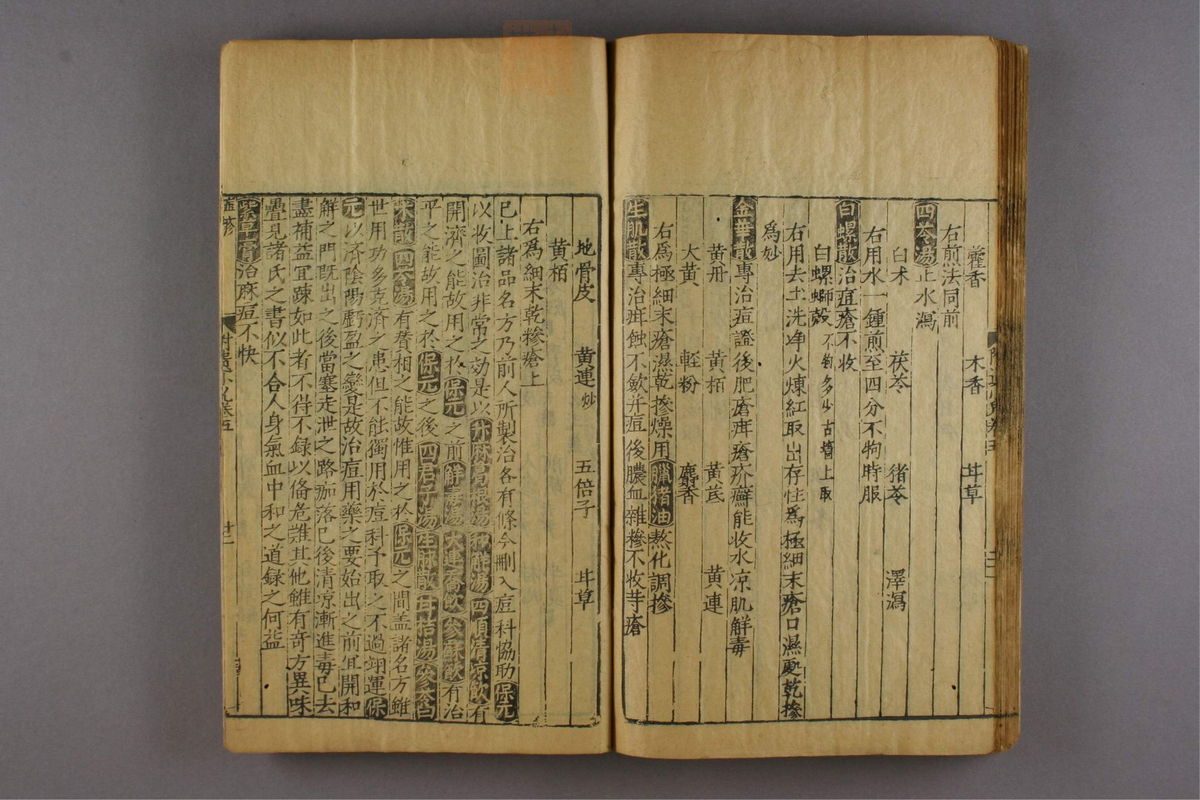 藿香 木香 甘草
右前法同前
四苓湯止水瀉
白术 茯苓 猪苓 澤瀉
右用水一鍾煎至四分不拘時服
白螺散治痘瘡不收
白螺螄殼不拘多少古墻上取
右用去土洗净火煉紅取出存性爲極細末瘡口濕處乾摻
爲妙
金華散專治痘證後肥瘡疳瘡疥癬能收水凉肌解毒
黄丹 黄栢 黄芪 黄連
大黄 輕粉 麝香
右爲極細末瘡濕乾摻燥用臘猪油熬化調摻
生肌散專治疳蝕不斂并痘後膿血雜糝不收等瘡
地骨皮 黄連炒 五倍子 甘草
黄栢
右爲細末乾摻瘡上
已上諸品名方乃前人所製治各有條今刪入痘科協助保元
以收圖治非常之功是以升麻葛根湯和解湯四順清凉飲有
開濟之能故用之於保元之前解毒湯大連翹飲參蘇飲有治
平之能故用之於保元之後四君子湯生脉散甘桔湯參苓白
术散四苓湯有贊相之能故惟用之於保元之間盖諸名方雖
世用功多克濟之患但不能獨用於痘科予取之不過翊運保
元以濟陰陽虧盈之變是故治痘用藥之要始出之前宜開和
解之門既出之後當塞走泄之路痂落已後清凉漸進毒已去
盡補益宜踈如此者不得不録以偹危難其他雖有奇方異味
疊見諸氏之書似不合人身氣血中和之道録之何益
紫草膏治麻痘不快